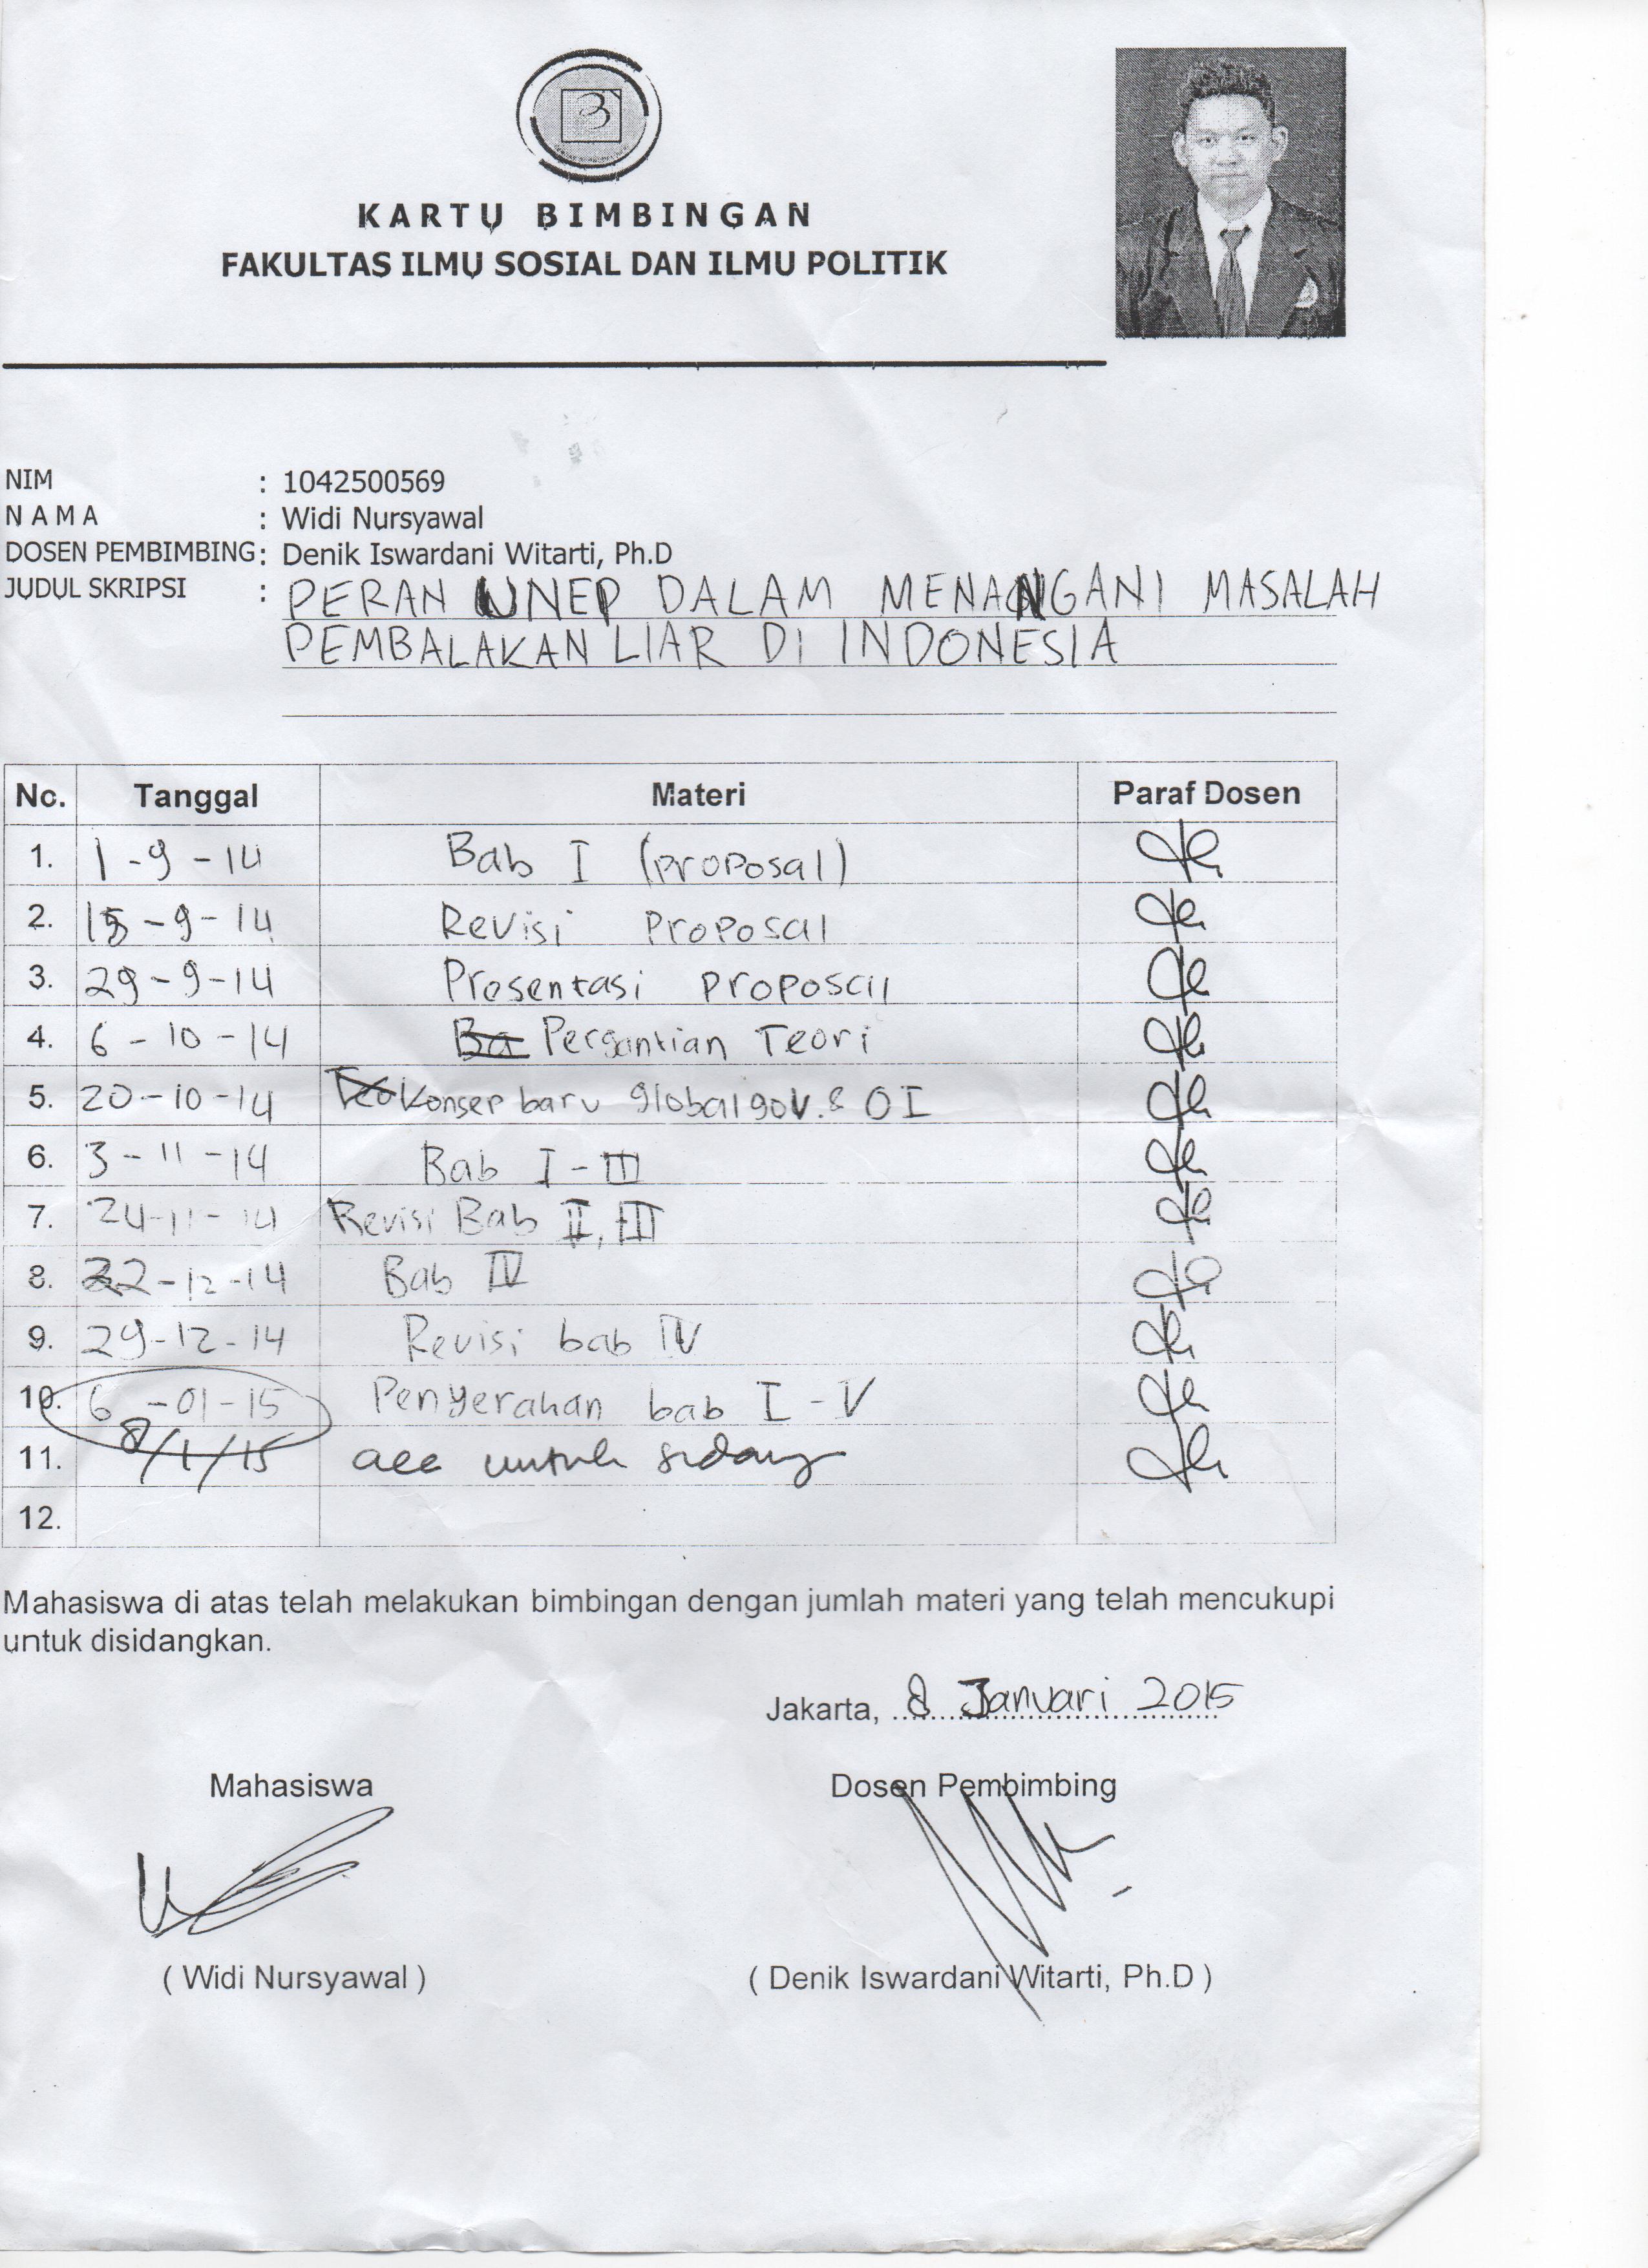 KARTU BIMBINGAN
FAKULTAS ILMU SOSIAL DAN ILMU POLITIK
NIM : 1042500569
NAMA : Widi Nursyawal
DOSEN PEMBIMBING : Denik Iswardani Witarti, Ph.D
JUDUL SKRIPSI : PERAN UNEP DALAM MENANGANI MASALAH
PEMBALAKAN LIAR DI INDONESIA
No. Tanggal Materi Paraf Dosen
1. 1-9-14 Bab I (proposal)
2. 15-9-14 Revisi proposal
3. 29-9-14 Presentasi proposal
4. 6-10-14 Ba Pergantian Teori
5. 20-10-14 Konsep baru global gov. & OI
6. 3-11-14 Bab I-III
7. 24-11-14 Revisi Bab II, III
8. 22-12-14 Bab IV
9. 29-12-14 Revisi bab IV
10. 6-01-15 Penyerahan bab I-V
11. 8/1/15 acc untuk sidang
12.
Mahasiswa di atas telah melakukan bimbingan dengan jumlah materi yang telah mencukupi
untuk disidangkan.
Jakarta, 8 Januari 2015
Mahasiswa Dosen Pembimbing
( Widi Nursyawal ) ( Denik Iswardani Witarti, Ph.D )